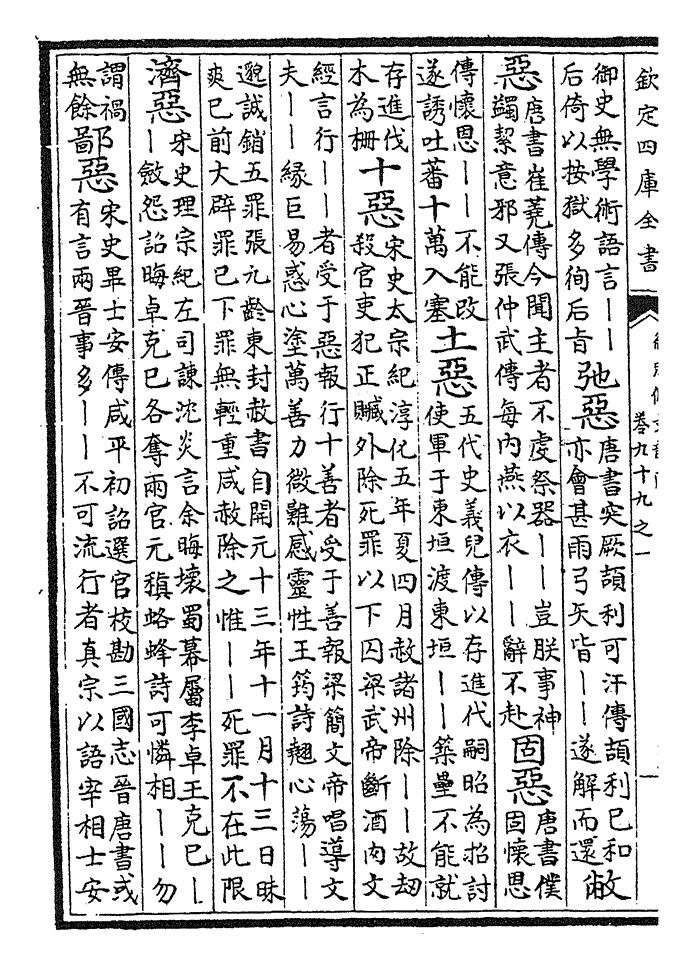 欽定四庫全書
卷九十九之一
御史無學術語言——
后倚以按獄多徇后旨
弛惡
唐書突厥頡利可汗傳頡利已和
亦會甚雨弓矢皆——遂解而還
敝
惡
唐書崔蕘傳今聞主者不虔祭器——豈朕事神
蠲絜意邪又張仲武傳每內燕以衣——辭不赴
固惡
唐書僕
固懷思
傳懷思——不能改
遂誘吐蕃十萬入塞
土惡
五代史義兒傳以存進代嗣昭為招討
使軍于東垣渡東垣——築壘不能就
存進伐
木為柵
十惡
宋史太宗紀淳化五年夏四月赦諸州除——故劫
殺官吏犯正贓外除死罪以下囚梁武帝斷酒肉文
經言行——者受于惡報行十善者受于善報梁簡文帝唱導文
夫——緣巨易惑心塗萬善力微難感靈性王筠詩翹心蕩——
邈誠銷五罪張九齡東封赦書自開元十三年十一月十三日昧
爽已前大辟罪已下罪無輕重咸赦除之惟——死罪不在此限
濟惡
宋史理宗紀左司諫沈炎言余晦壞蜀幕屬李卓王克已—
—斂怨詔晦卓克已各奪兩官元稹蛒蜂詩可憐相——勿
謂禍
無餘
鄙惡
宋史畢士安傳咸平初詔選官校勘三國志晉唐書或
有言兩晉事多——不可流行者真宗以語宰相士安